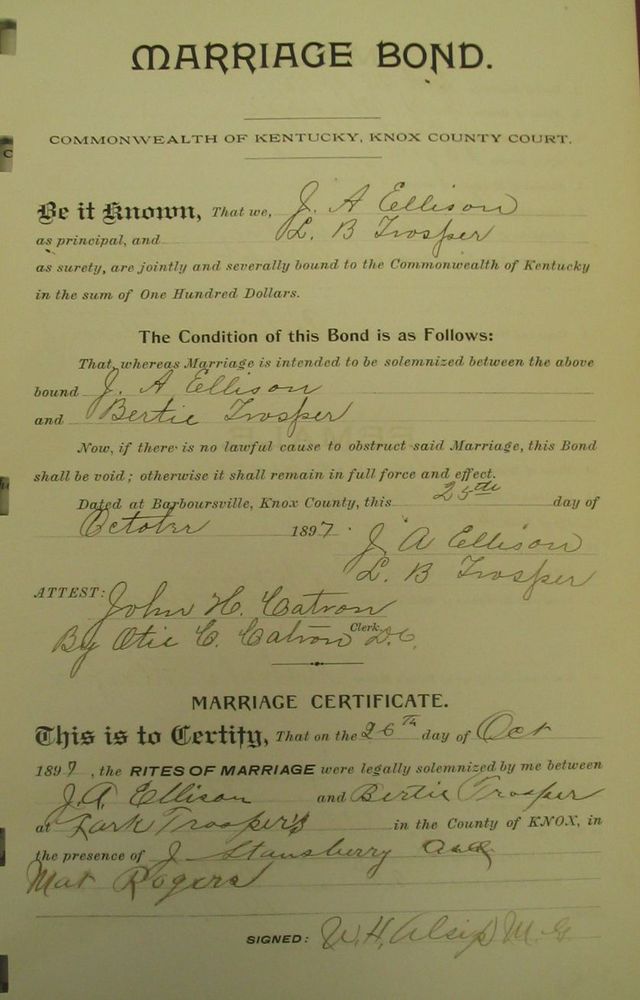 MARRIAGE BOND.
COMMONWEALTH OF KENTUCKY, KNOX COUNTY COURT.
Be it Known, That we, J. A Ellison
as principal, and L. B Trosper
as surety, are jointly and severally bound to the Commonwealth of Kentucky
in the sum of One Hundred Dollars.
The Condition of this Bond is as Follows:
That, whereas Marriage is intended to be solemnized between the above
bound J. A Ellison
and Bertie Trosper
Now, if there is no lawful cause to obstruct said Marriage, this Bond
shall be void; otherwise it shall remain in full force and effect.
Dated at Barboursville, Knox County, this 25th day of
October 1897.
J. A Ellison
L. B Trosper
ATTEST: John H. Catron
By Otie C. Catron Clerk D.C.
MARRIAGE CERTIFICATE.
This is to Certify, That on the 26th day of Oct
1897, the RITES OF MARRIAGE were legally solemnized by me between
J.A. Ellison and Bertie Trosper
at Lark Trosper's in the County of KNOX, in
the presence of J. Stansberry and
Mat Rogers
SIGNED: W.H. Alsip M.G